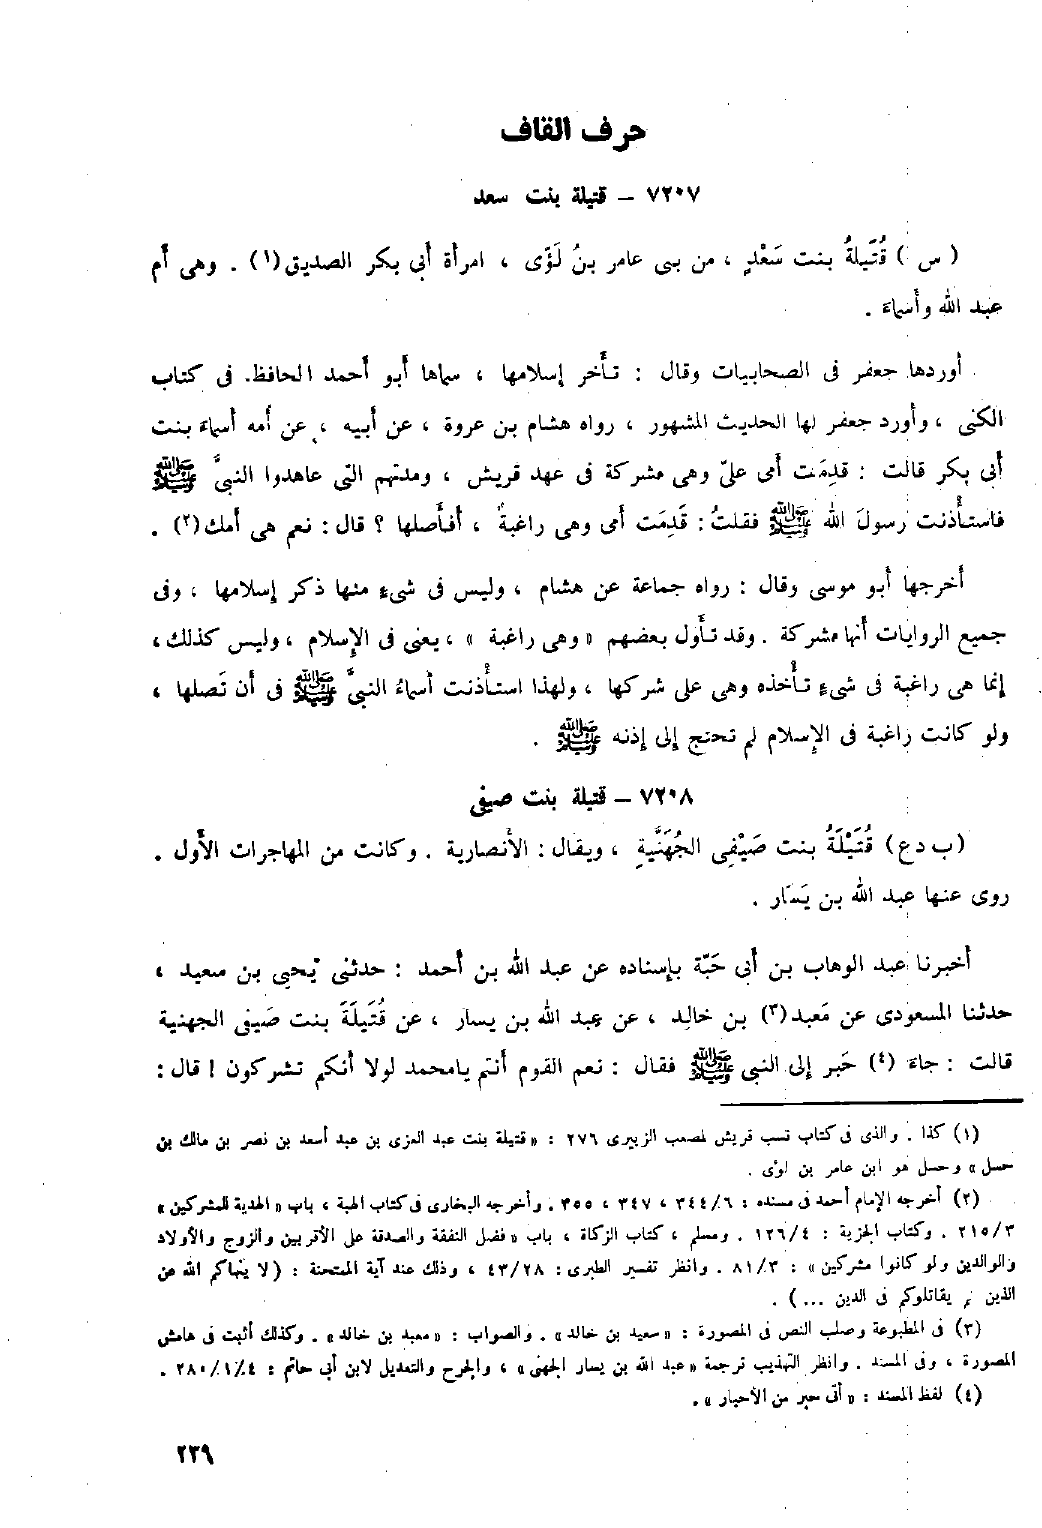 حرف القاف
٧٢٠٧ – قتيلة بنت سعد
( س ) قُتَيلةُ بنت سَعْدٍ ، من بنى عامر بنُ لَؤى ، امرأة أبى بكر الصديق(١) . وهى أم
عبد الله وأسماء .
أوردها جعفر فى الصحابيات وقال : تأَخر إسلامها ، سماها أبو أحمد الحافظ فى كتاب
الكنى ، وأورد جعفر لها الحديث المشهور ، رواه هشام بن عروة ، عن أبيه ، عن أمه أسماء بنت
أبى بكر قالت : قدِمَت أمى علىّ وهى مشركة فى عهد قريش ، ومدتهم التى عاهدوا النبىَّ ﷺ
فاستأْذنت رسولَ الله ﷺ فقلتُ : قَدِمَت أمى وهى راغبةٌ ، أفأَصلها ؟ قال : نعم هى أمك(٢) .
أخرجها أبو موسى وقال : رواه جماعة عن هشام ، وليس فى شىءٍ منها ذكر إسلامها ، وفى
جميع الروايات أنها مشركة . وقد تأَول بعضهم « وهى راغبة » ، يعنى فى الإسلام ، وليس كذلك ،
إنما هى راغبة فى شىءٍ تأْخذه وهى على شركها ، ولهذا استأْذنت أسماءُ النبىَّ ﷺ فى أن تَصلها ،
ولو كانت راغبة فى الإسلام لم تحتج إلى إذنه ﷺ .
٧٢٠٨ – قتيلة بنت صيفى
(ب د ع) قُتَيْلَةُ بنت صَيْفِى الجُهَنَّيةِ ، ويقال : الأنصارية . وكانت من المهاجرات الأَول .
روى عنها عبد الله بن يَسَار .
أخبرنا عبد الوهاب بن أبى حَبّة بإسناده عن عبد الله بن أحمد : حدثنى يحيى بن سعيد ،
حدثنا المسعودى عن مَعبد(٣) بن خالد ، عن عبد الله بن يسار ، عن قُتَيلَةَ بنت صَيفى الجهنية
قالت : جاءَ (٤) حَبر إلى النبى ﷺ فقال : نعم القوم أنتم يامحمد لولا أنكم تشركون ! قال :
(١) كذا . والذى فى كتاب نسب قريش لمصعب الزبيرى ٢٧٦ : « قتيلة بنت عبد العزى بن عبد أسعد بن نصر بن مالك بن
حسل » وحسل هو ابن عامر بن لوى .
(٢) أخرجه الإمام أحمد فى مسنده : ٣٤٤/٦ ، ٣٤٧ ، ٣٥٥ . وأخرجه البخارى فى كتاب الهبة ، باب « الهدية للمشركين »
٢١٥/٣ . وكتاب الجزية : ١٢٦/٤ . ومسلم ، كتاب الزكاة ، باب « فضل النفقة والصدقة على الأقربين والزوج والأولاد
والوالدين ولو كانوا مشركين » : ٨١/٣ . وانظر تفسير الطبرى : ٤٣/٢٨ ، وذلك عند آية الممتحنة : (لا ينهاكم الله عن
الذين لم يقاتلوكم فى الدين ...) .
(٣) فى المطبوعة وصلب النص فى المصورة : « سعيد بن خالد » . والصواب : « معبد بن خالد » . وكذلك أثبت فى هامش
المصورة ، وفى المسند . وانظر التهذيب ترجمة « عبد الله بن يسار الجهنى » ، والجرح والتعديل لابن أبى حاتم : ٢٨٠/١/٤ .
(٤) لفظ المسند : « أتى حبر من الأحبار » .
٢٣٩